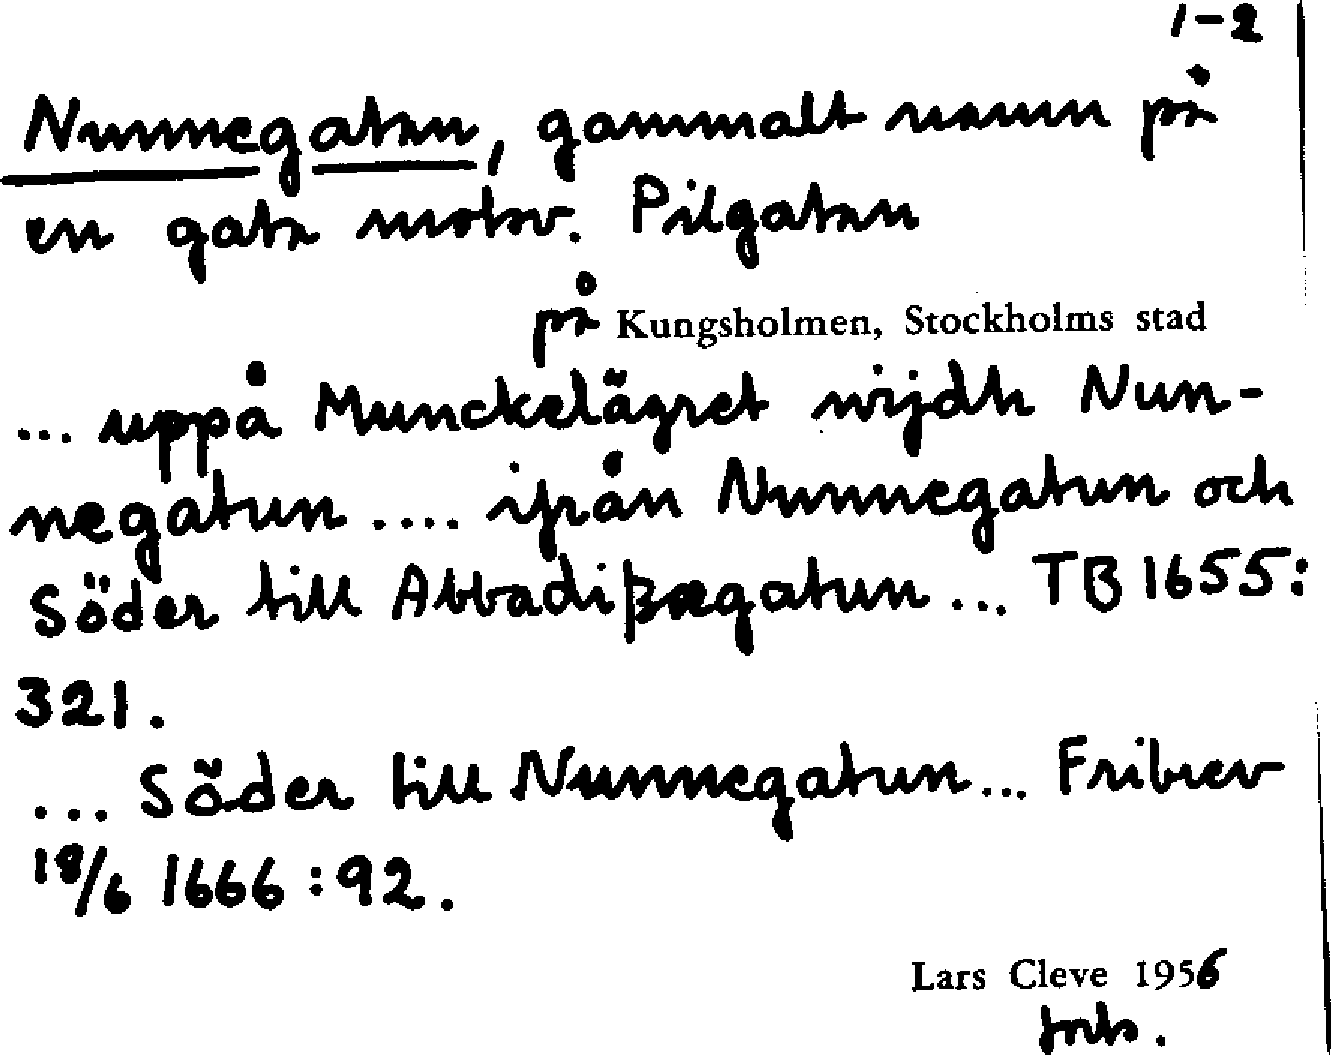 1-2
Nunnegatan, gammalt namn på
en gata motsv. Pilgatan
på Kungsholmen, Stockholms stad
... uppå Munckelägret wijdh Nun-
negatun .... ifrån Nunnegatun och
Söder till Abbadißægatun ... TB 1655:
321.
... Söder till Nunnegatun ... Fribrev
18/6 1666:92.
Lars Cleve 1956
forts.